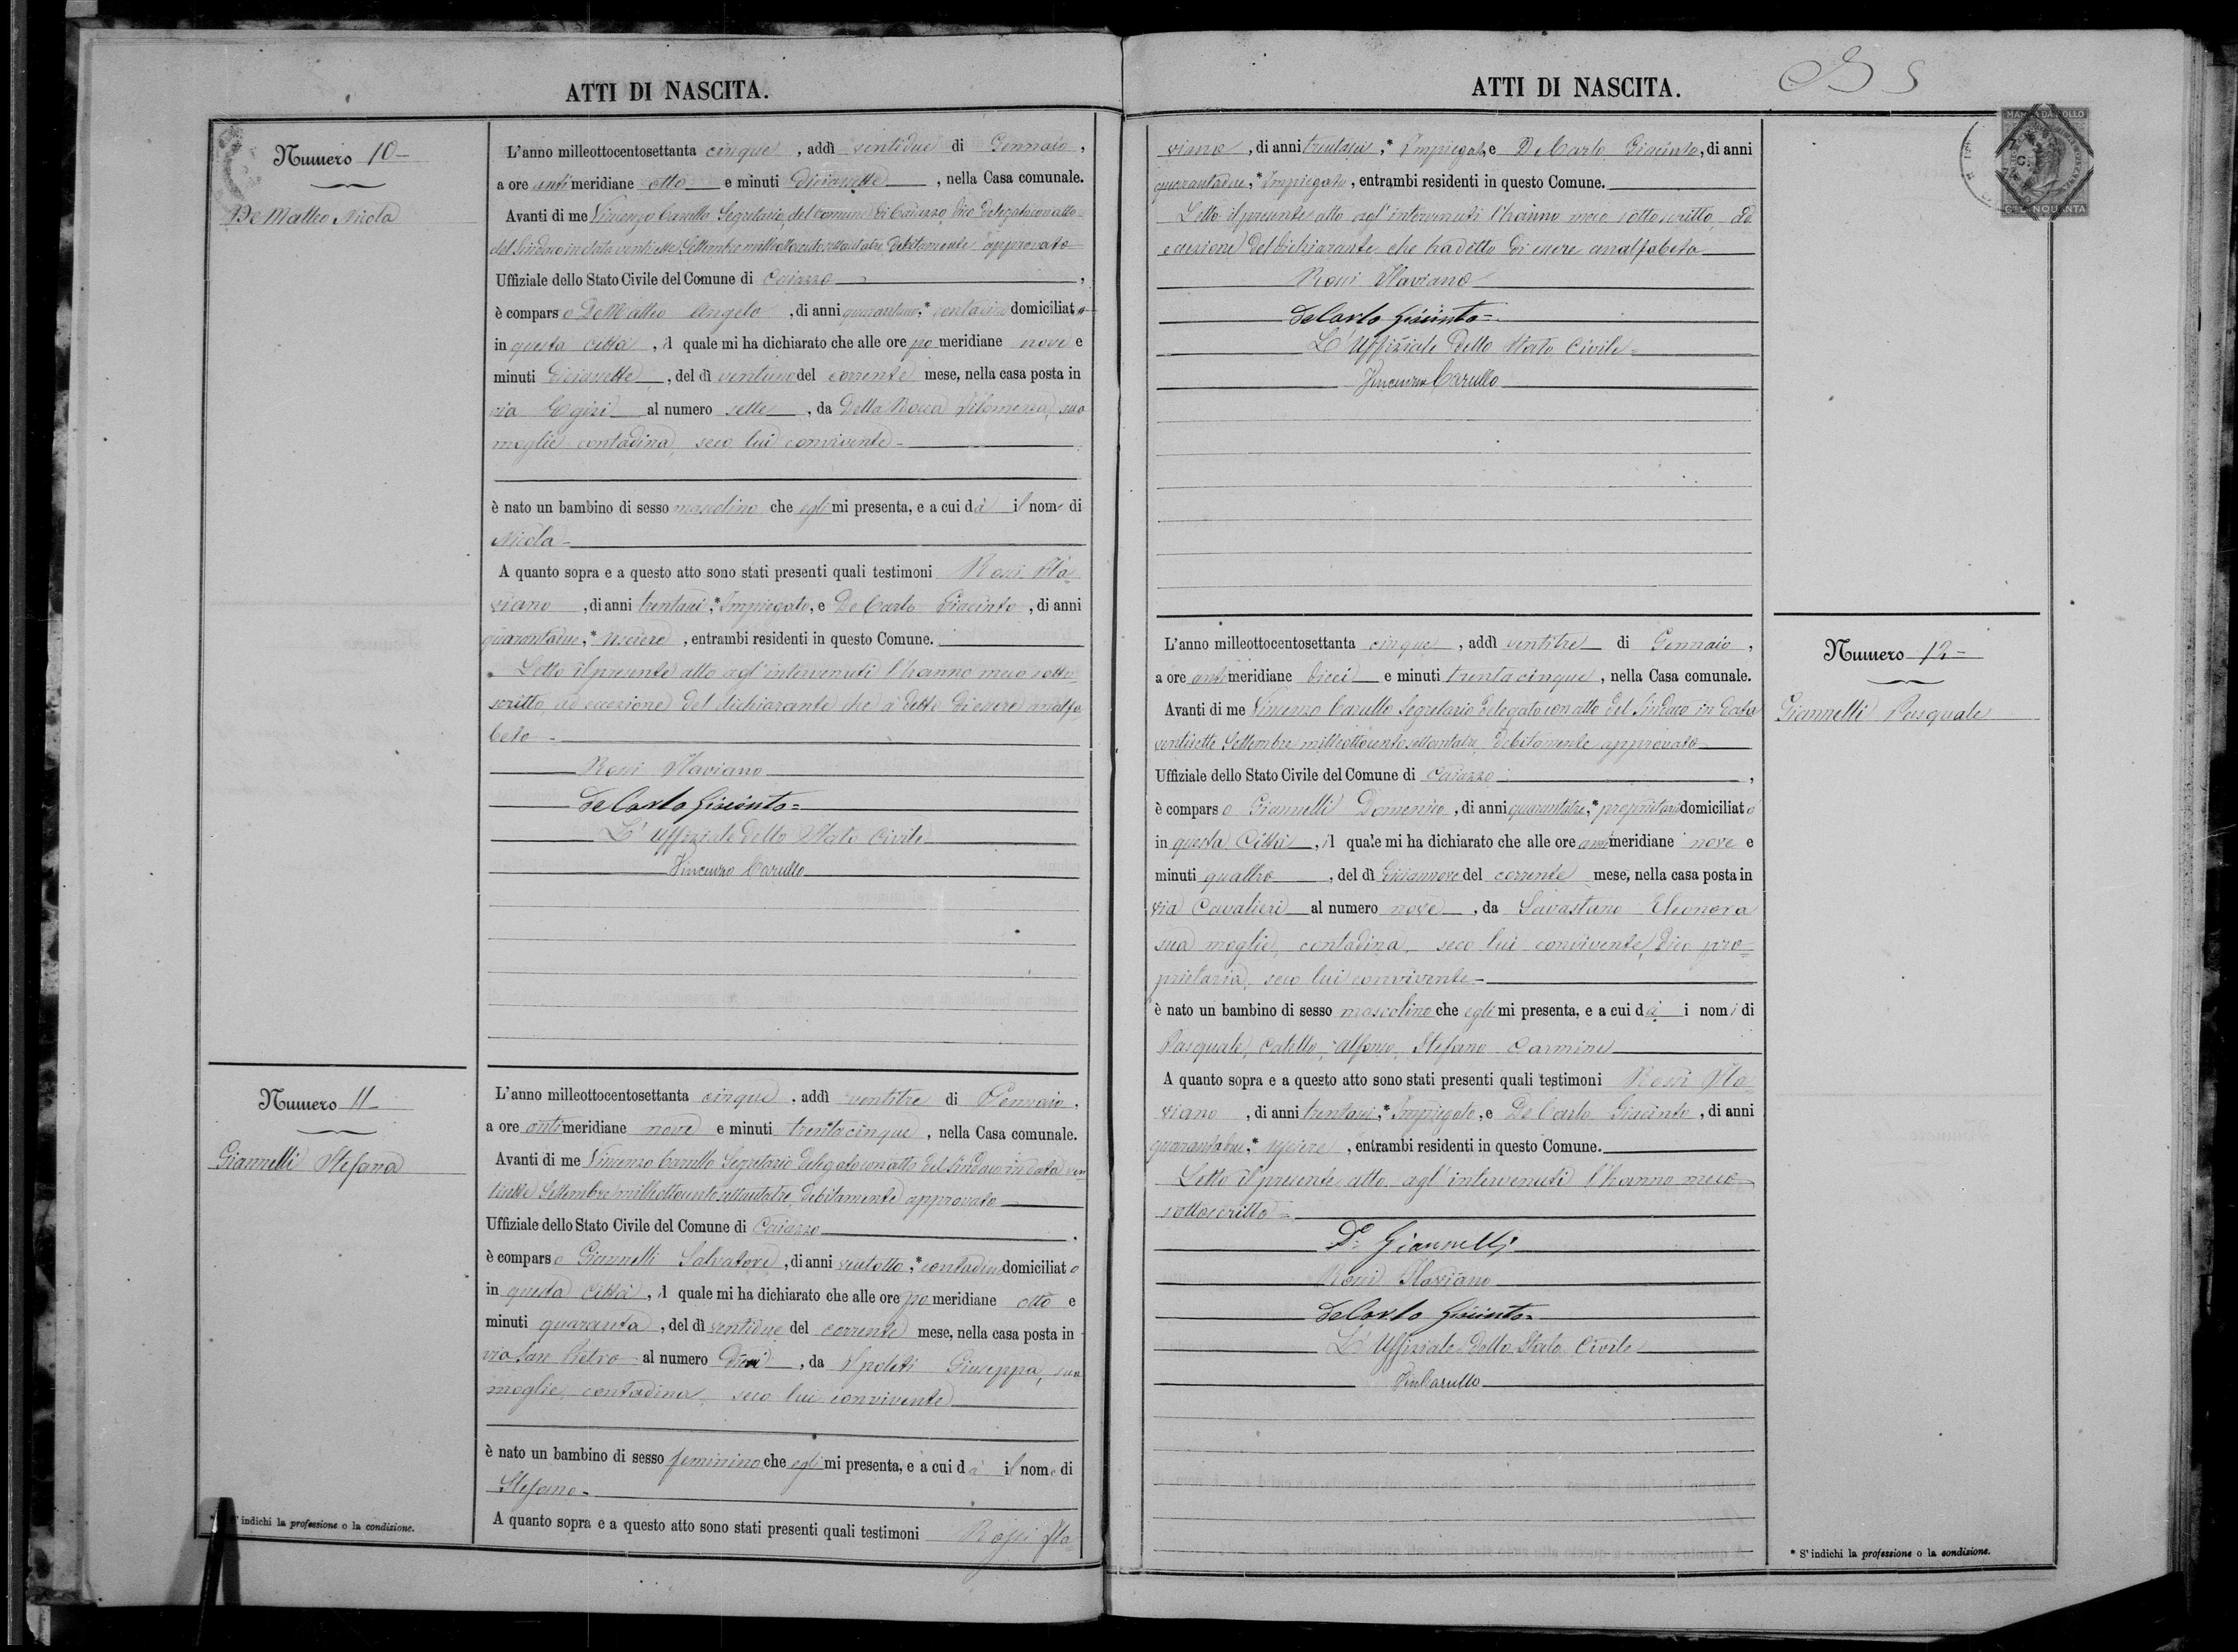 ATTI DI NASCITA.
Numero 10
De Matteo Nicola
L'anno milleottocentosettanta cinque, addì ventidue di Gennaio,
a ore antimeridiane otto e minuti diciassette, nella Casa comunale.
Avanti di me Vincenzo Carullo Segretario del Comune di Caiazzo dico delegato con atto
del Sindaco in data ventisette Settembre milleottocentosettantatre, debitamente approvato
Uffiziale dello Stato Civile del Comune di Caiazzo,
è comparso De Matteo Angelo, di anni * contadino domiciliato
in questa città, il quale mi ha dichiarato che alle ore pomeridiane nove e
minuti diciassette, del dì ventuno del corrente mese, nella casa posta in
via Egizi al numero sette, da Della Rocca Filomena, sua
moglie contadina, seco lui convivente
è nato un bambino di sesso mascolino che egli mi presenta, e a cui dà il nome di
Nicola
A quanto sopra e a questo atto sono stati presenti quali testimoni Rossi Fla=
viano, di anni trentasei,* Impiegato, e De Carlo Giacinto, di anni
quarantadue,* Usciere, entrambi residenti in questo Comune.
Letto il presente atto agl'intervenuti l'hanno meco sotto=
scritto, ad eccezione del dichiarante che à detto di essere analfa
beto
Rossi Flaviano
De Carlo Giacinto=
L'Uffiziale dello Stato Civile
Vincenzo Carullo
Numero 11
Giannelli Stefana
L'anno milleottocentosettanta cinque, addì ventitre di Gennaio,
a ore antimeridiane nove e minuti trentacinque, nella Casa comunale.
Avanti di me Vincenzo Carullo Segretario delegato con atto del Sindaco in data ven=
tisette Settembre milleottocentosettantatre, debitamente approvato
Uffiziale dello Stato Civile del Comune di Caiazzo.
è comparso Giannelli Salvatore, di anni ventotto,* contadino domiciliato
in questa città, il quale mi ha dichiarato che alle ore pomeridiane otto e
minuti quaranta, del dì ventidue del corrente mese, nella casa posta in
via San Pietro al numero dieci, da Spoleti Giuseppa, sua
moglie, contadina, seco lui convivente
è nato un bambino di sesso feminino che egli mi presenta, e a cui dà il nome di
Stefana
A quanto sopra e a questo atto sono stati presenti quali testimoni Rossi Fla=
* S'indichi la professione o la condizione.
ATTI DI NASCITA.
MARCA DA BOLLO
CINQUANTA
viano, di anni trentasei,* Impiegato, e De Carlo Giacinto, di anni
quarantadue,* Impiegato, entrambi residenti in questo Comune.
Letto il presente atto agl'intervenuti l'hanno meco sottoscritto, ad
eccezione del dichiarante che ha detto di essere analfabeta
Rossi Flaviano
De Carlo Giacinto=
L'Uffiziale dello Stato Civile=
Vincenzo Carullo
Numero 12
Giannelli Pasquale
L'anno milleottocentosettanta cinque, addì ventitre di Gennaio,
a ore antimeridiane dieci e minuti trentacinque, nella Casa comunale.
Avanti di me Vincenzo Carullo Segretario delegato con atto del Sindaco in data
ventisette Settembre milleottocentosettantatre, debitamente approvato
Uffiziale dello Stato Civile del Comune di Caiazzo,
è comparso Giannelli Domenico, di anni quarantatre,* proprietario domiciliato
in questa Città, il quale mi ha dichiarato che alle ore antimeridiane nove e
minuti quattro, del dì diciannove del corrente mese, nella casa posta in
via Cavalieri al numero nove, da Savastano Eleonora
sua moglie, contadina, seco lui convivente, dico pro=
prietaria, seco lui convivente
è nato un bambino di sesso mascolino che egli mi presenta, e a cui dà i nomi di
Pasquale, Catello, Alfonso, Stefano Carmine
A quanto sopra e a questo atto sono stati presenti quali testimoni Rossi Fla=
viano, di anni trentasei,* Impiegato, e De Carlo Giacinto, di anni
quarantadue,* usciere, entrambi residenti in questo Comune.
Letto il presente atto agl'intervenuti l'hanno meco
sottoscritto=
Do Giannelli
Rossi Flaviano
De Carlo Giacinto=
L'Uffiziale dello Stato Civile
Vin Carullo
* S'indichi la professione o la condizione.